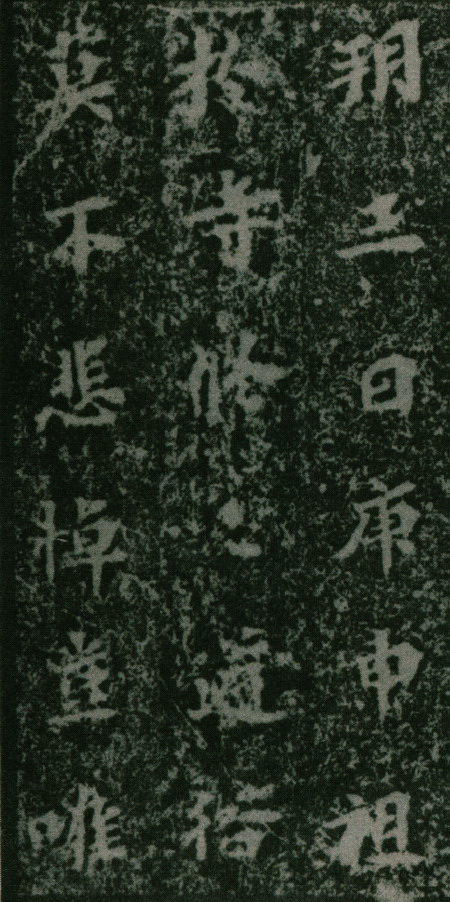 朔二日庚申祖
於寺道俗
莫不悲悼豈唯